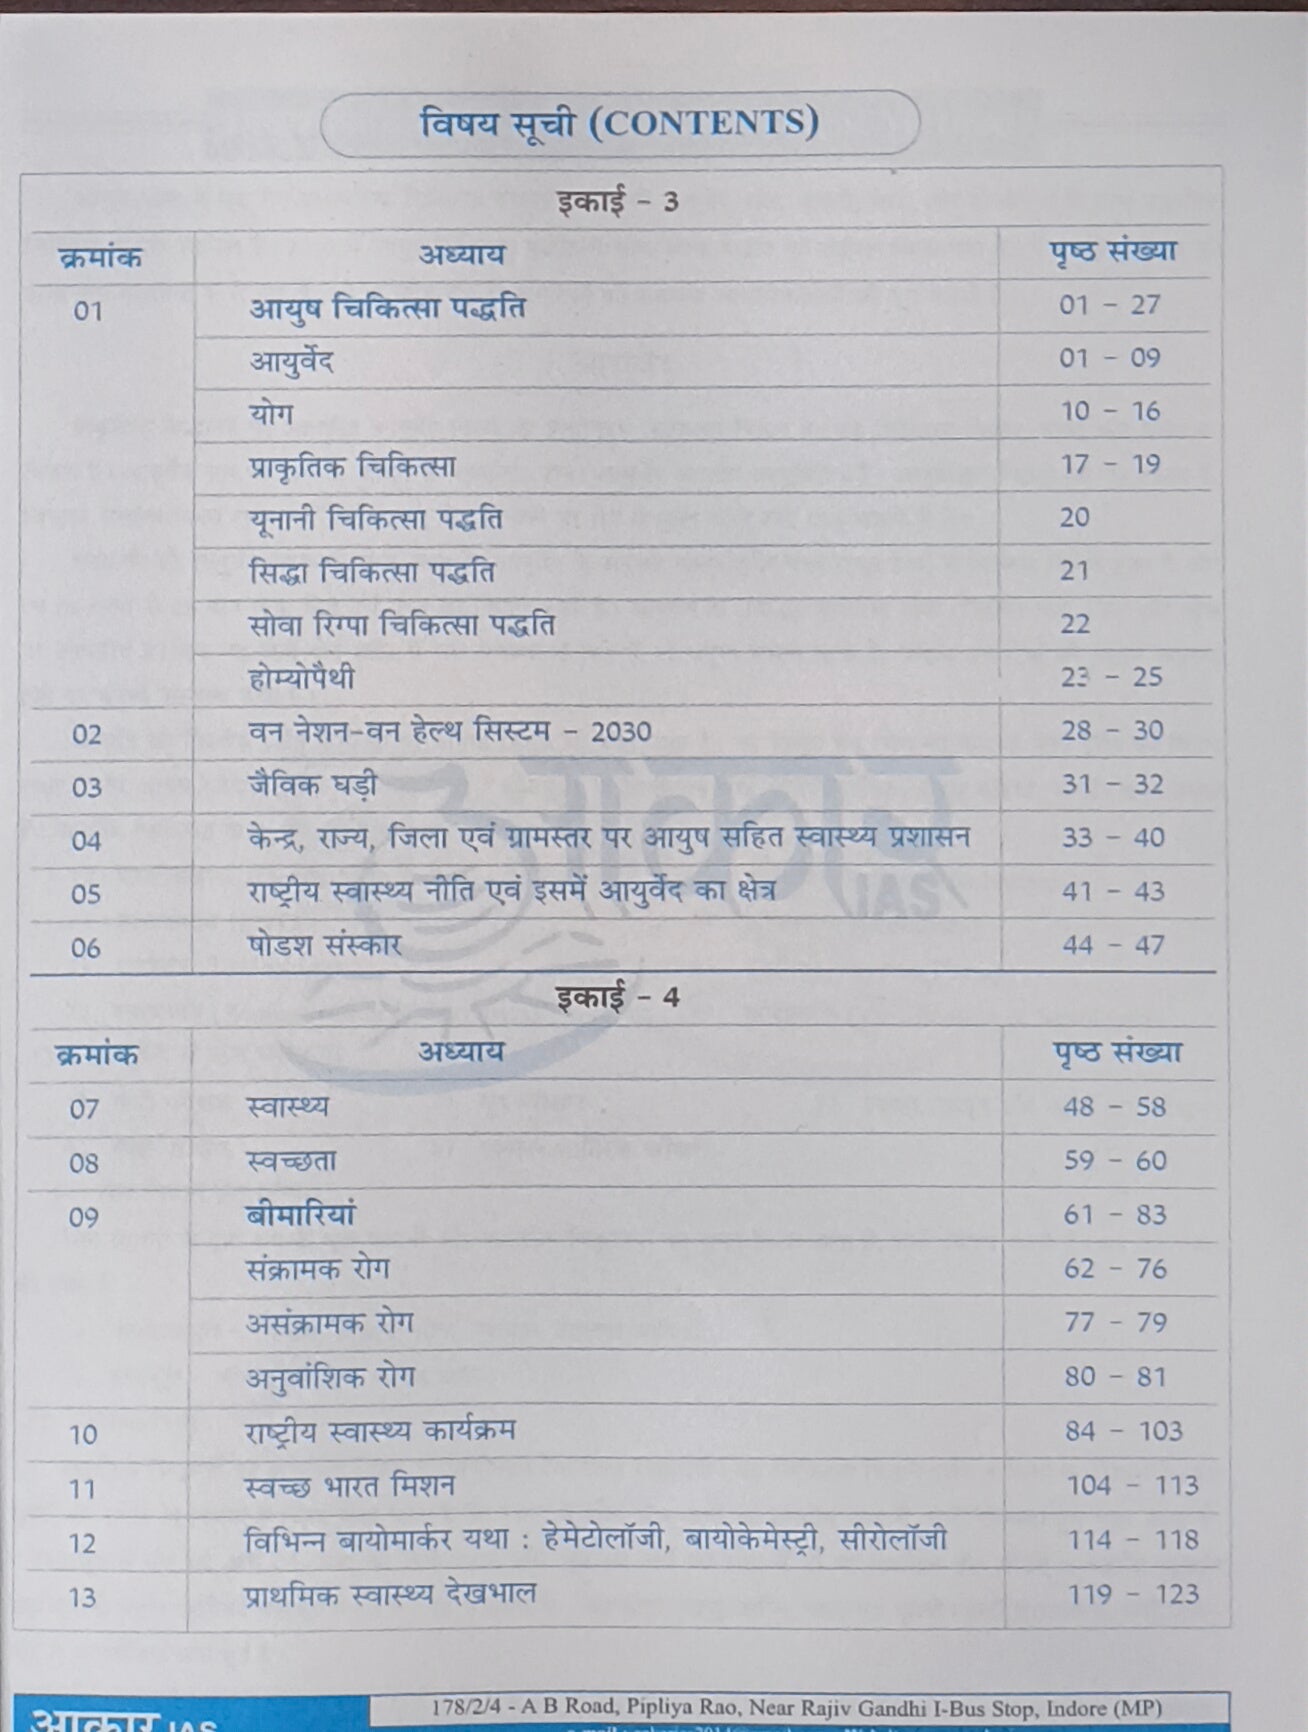 विषय सूची (CONTENTS)
इकाई - 3
क्रमांक अध्याय पृष्ठ संख्या
01 आयुष चिकित्सा पद्धति 01 - 27
आयुर्वेद 01 - 09
योग 10 - 16
प्राकृतिक चिकित्सा 17 - 19
यूनानी चिकित्सा पद्धति 20
सिद्धा चिकित्सा पद्धति 21
सोवा रिग्पा चिकित्सा पद्धति 22
होम्योपैथी 23 - 25
02 वन नेशन-वन हेल्थ सिस्टम - 2030 28 - 30
03 जैविक घड़ी 31 - 32
04 केन्द्र, राज्य, जिला एवं ग्रामस्तर पर आयुष सहित स्वास्थ्य प्रशासन 33 - 40
05 राष्ट्रीय स्वास्थ्य नीति एवं इसमें आयुर्वेद का क्षेत्र 41 - 43
06 षोडश संस्कार 44 - 47
आकार IAS
इकाई - 4
क्रमांक अध्याय पृष्ठ संख्या
07 स्वास्थ्य 48 - 58
08 स्वच्छता 59 - 60
09 बीमारियां 61 - 83
संक्रामक रोग 62 - 76
असंक्रामक रोग 77 - 79
अनुवांशिक रोग 80 - 81
10 राष्ट्रीय स्वास्थ्य कार्यक्रम 84 - 103
11 स्वच्छ भारत मिशन 104 - 113
12 विभिन्न बायोमार्कर यथा : हेमेटोलॉजी, बायोकेमेस्ट्री, सीरोलॉजी 114 - 118
13 प्राथमिक स्वास्थ्य देखभाल 119 - 123
आकार IAS 178/2/4 - A B Road, Pipliya Rao, Near Rajiv Gandhi I-Bus Stop, Indore (MP)